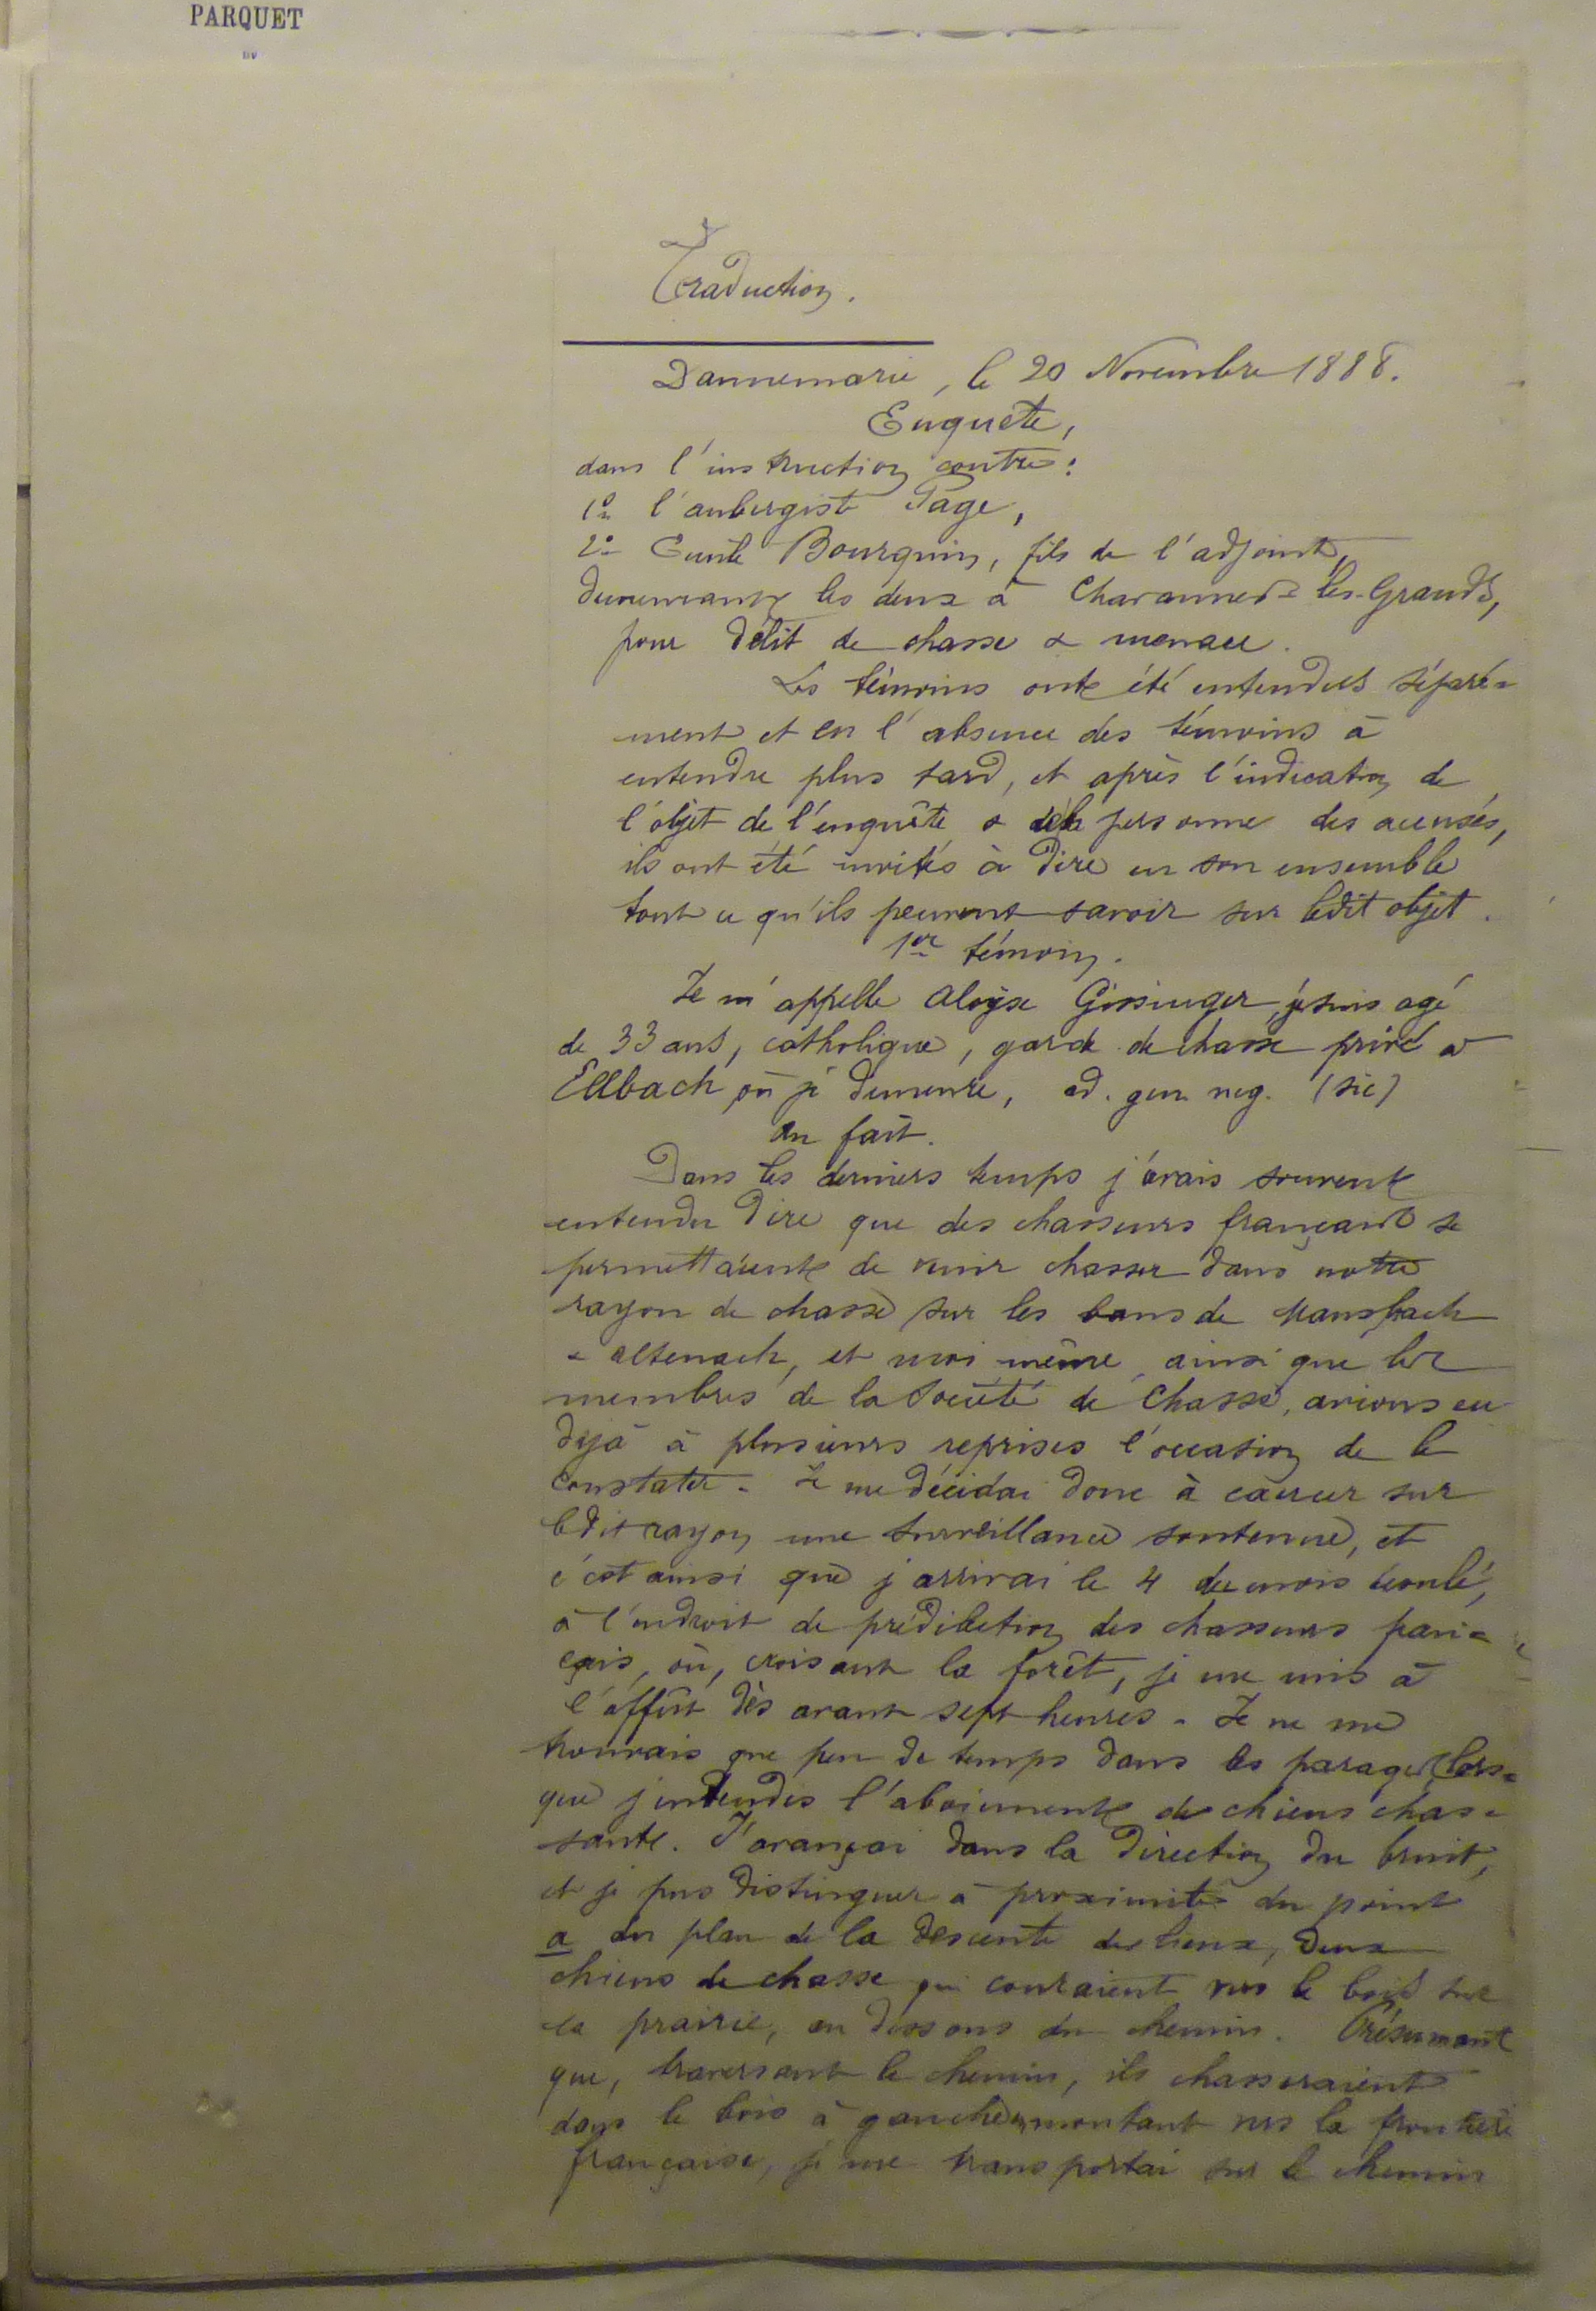 PARQUET
DU
Traduction.
Dannemarie, le 20 Novembre 1888.
Enquête,
dans l'instruction contre:
1º l'aubergiste Page,
2º Emile Bourquin, fils de l'adjoint,
demeurant les deux à Chavannes-les-Grands,
pour délit de chasse & menace.
Les témoins ont été entendus séparé=
ment et en l'absence des témoins à
entendre plus tard, et après l'indication de
l'objet de l'enquête & de la personne des accusés,
ils ont été invités à dire en son ensemble
tout ce qu'ils peuvent savoir sur ledit objet.
1er témoin.
Je m'appelle Aloyse Gissinger, je suis agé
de 33 ans, catholique, garde de chasse privé à
Ellbach où je demeure, ad. gen. neg. (sic)
au fait.
Dans les derniers temps j'avais souvent
entendu dire que des chasseurs français se
permettaient de venir chasser dans notre
rayon de chasse sur les bans de Mansbach
& Altenach, et moi même, ainsi que les
membres de la Société de Chasse, avions eu
déjà à plusieurs reprises l'occasion de le
constater. Je me décidai donc à exercer sur
ledit rayon une surveillance soutenue, et
c'est ainsi que j'arrivai le 4 du mois écoulé,
à l'endroit de prédilection des chasseurs fran=
çais, où, croisant la forêt, je me mis à
l'affût dès avant sept heures. Je ne me
trouvais que peu de temps dans les parages, lors=
que j'entendis l'aboiement de chiens chas=
sants. J'avançai dans la direction du bruit,
et je pus distinguer à proximité du point
a du plan de la descente des lieux, deux
chiens de chasse qui couraient vers le bois sur
la prairie, au dessous du chemin. Présumant
que, traversant le chemin, ils chasseraient
dans le bois à gauche en montant vers la frontière
française, je me transportai sur le chemin